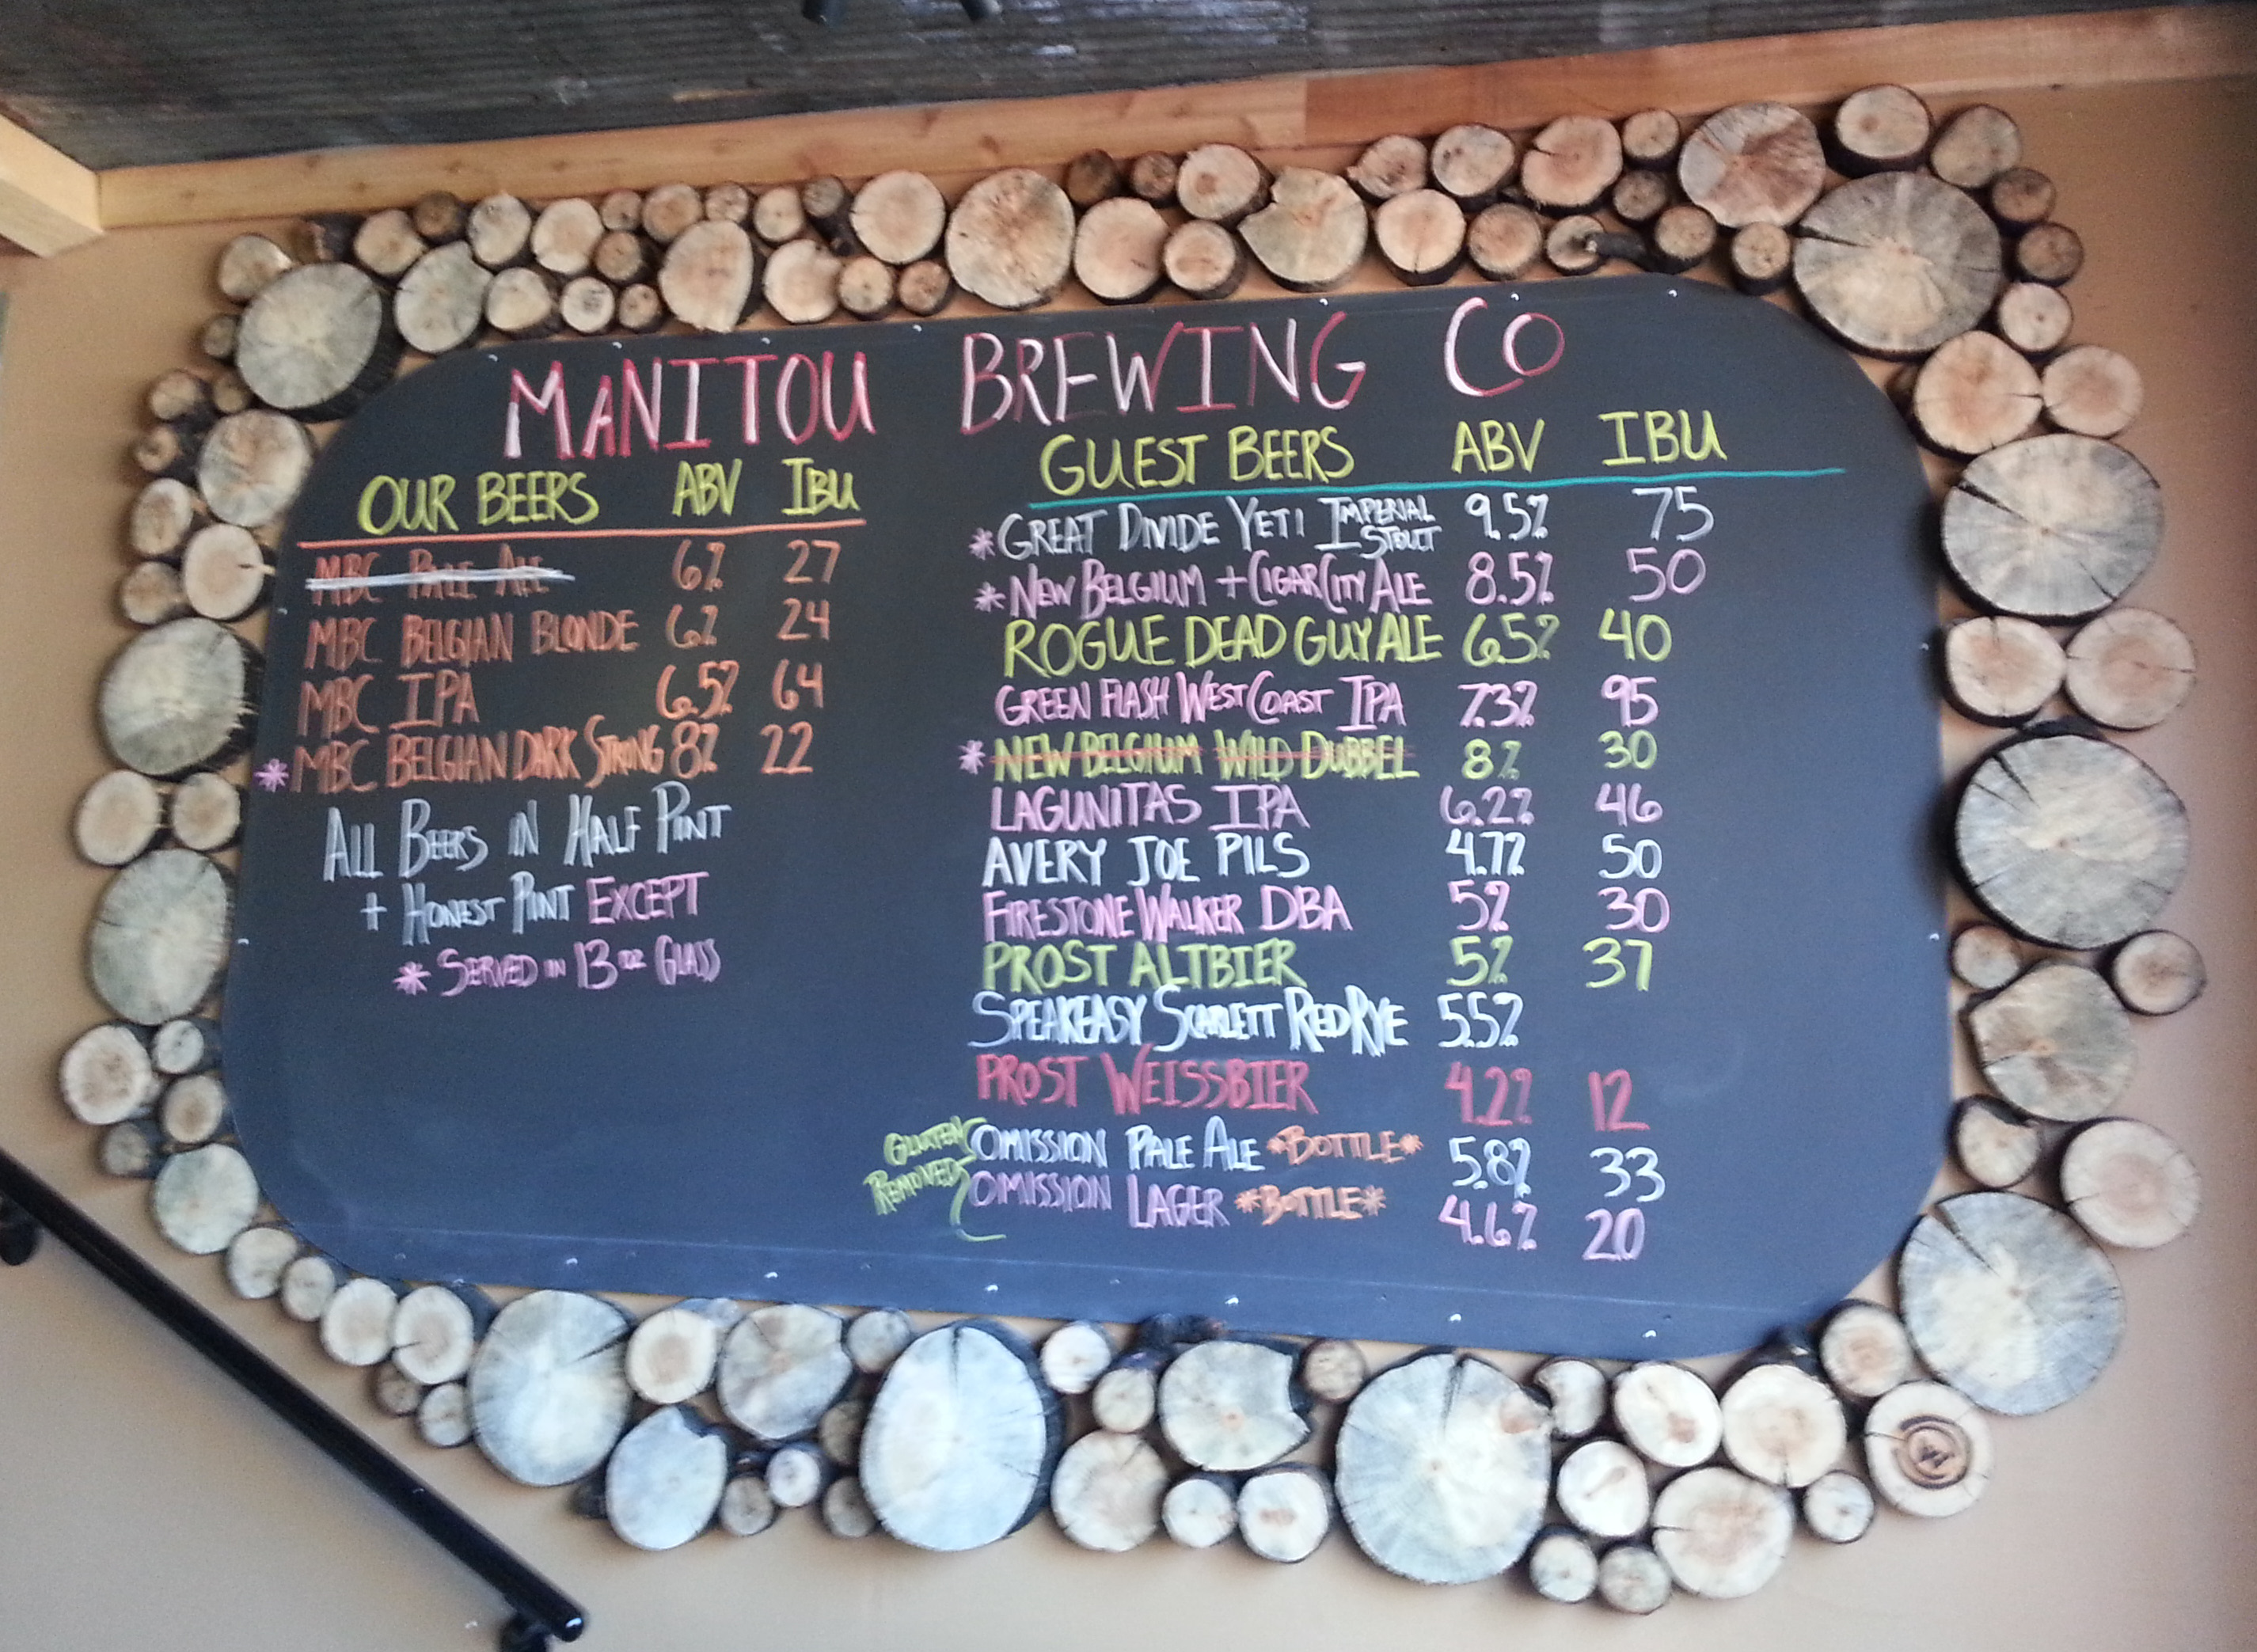 MANITOU BREWING CO
OUR BEERS ABV IBU
MBC PALE ALE 6% 27
MBC BELGIAN BLONDE 6% 24
MBC IPA 6.5% 64
* MBC BELGIAN DARK STRONG 8% 22
ALL BEERS IN HALF PINT
+ HONEST PINT EXCEPT
* SERVED IN 13 OZ GLASS
GUEST BEERS ABV IBU
* GREAT DIVIDE YETI IMPERIAL STOUT 9.5% 75
* NEW BELGIUM + CIGAR CITY ALE 8.5% 50
ROGUE DEAD GUY ALE 6.5% 40
GREEN FLASH WEST COAST IPA 7.3% 95
* NEW BELGIUM WILD DUBBEL 8% 30
LAGUNITAS IPA 6.2% 46
AVERY JOE PILS 4.7% 50
FIRESTONE WALKER DBA 5% 30
PROST ALTBIER 5% 37
SPEAKEASY SCARLETT RED RYE 5.5%
PROST WEISSBIER 4.2% 12
GLUTEN REMOVED
OMISSION PALE ALE *BOTTLE* 5.8% 33
OMISSION LAGER *BOTTLE* 4.6% 20